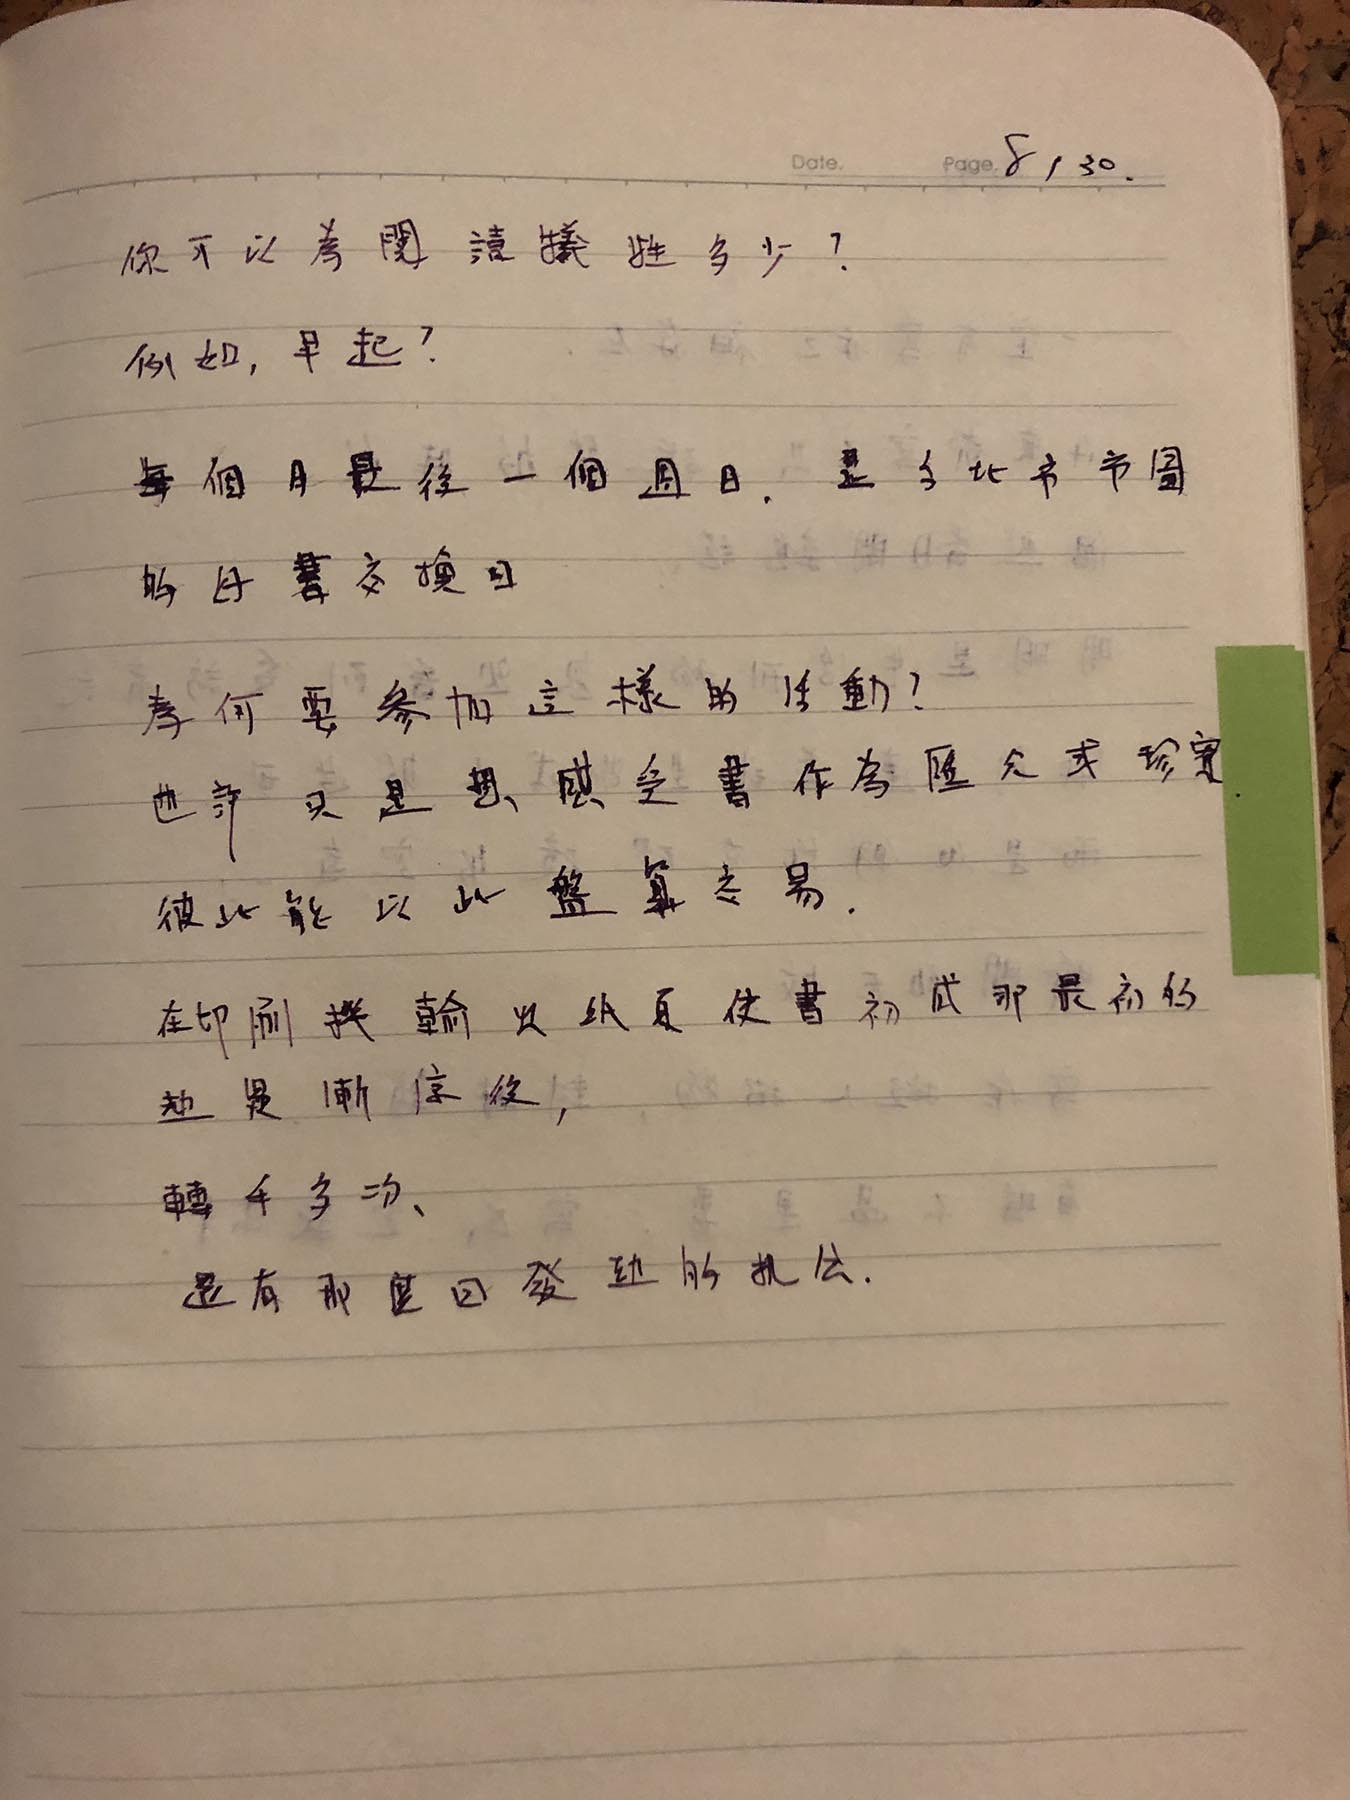 Date. Page. 8/30.
你可以為閱讀犧牲多少?
例如,早起?
每個月最後一個週日.是台北市市圖
的好書交換日
為何要參加這樣的活動?
也許只是想感受書作為匯兌或珍寶.
彼此能以此盤算交易.
在印刷機輸出紙頁使書初成那最初的
動 漸停後,
轉手多次、
還有那 回發動的机会.